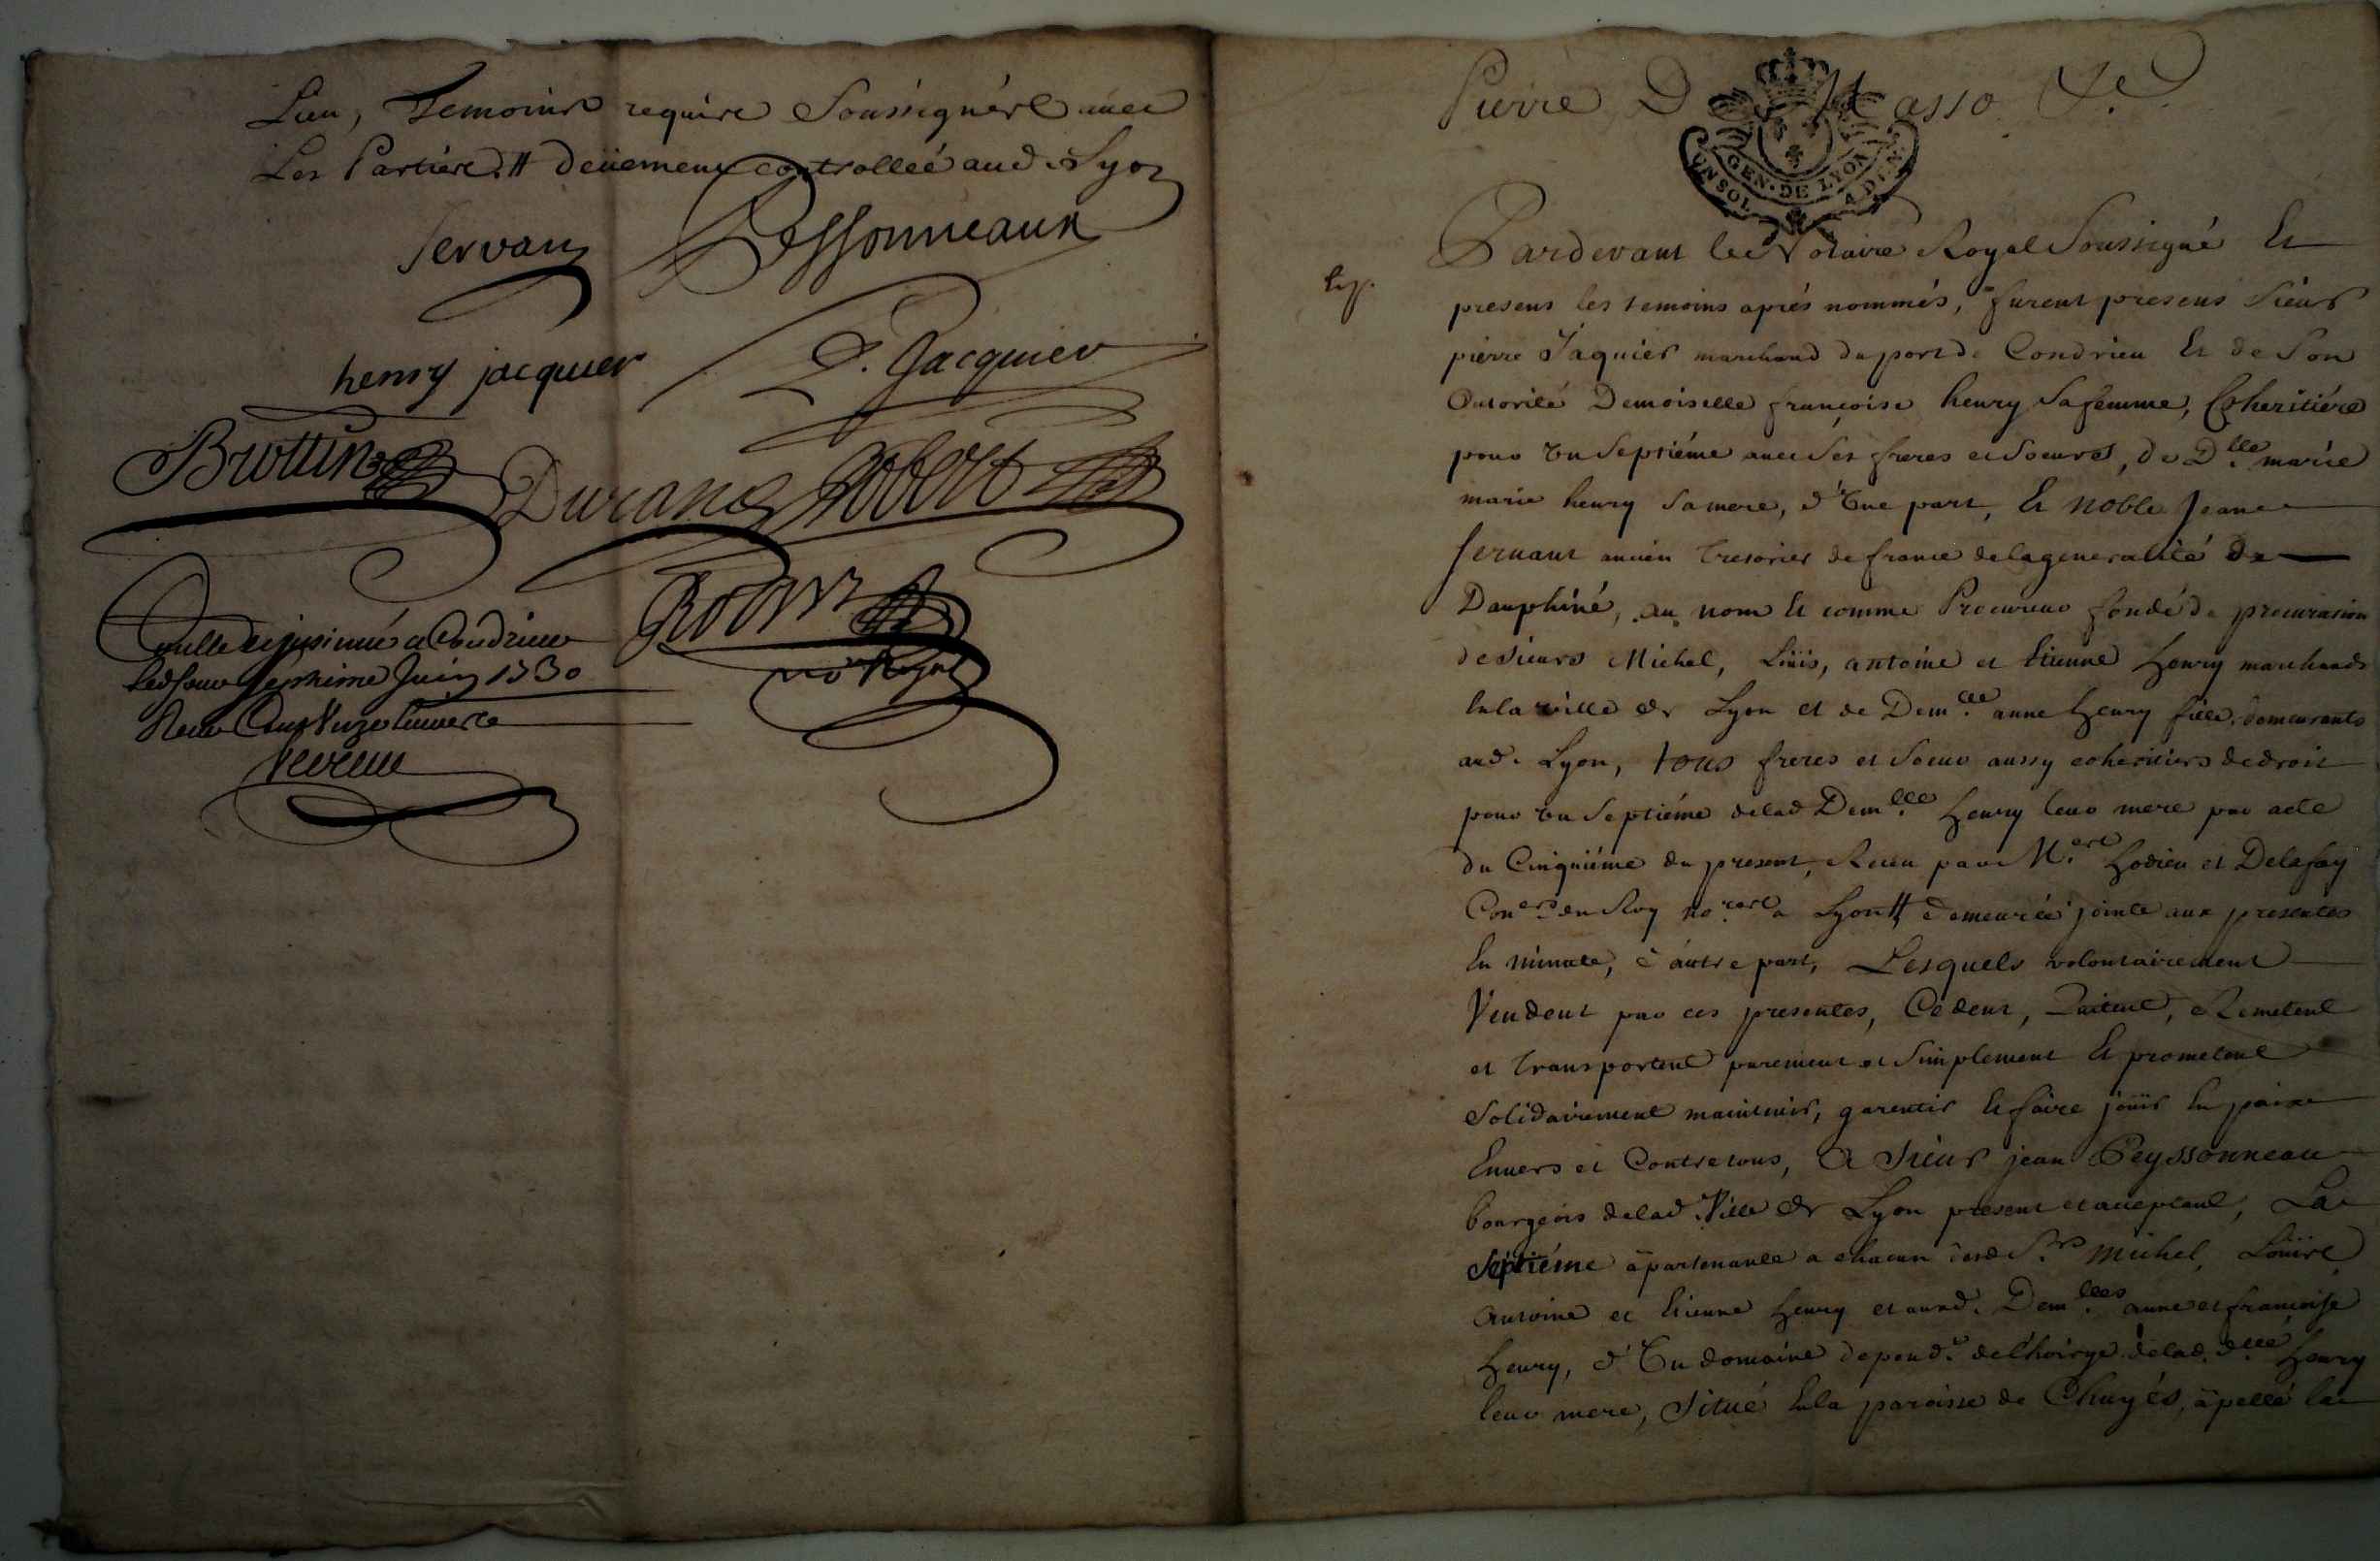 Lieu, Temoins require Soussignés avec
Les Parties. # deüement controlleé aud. Lyon
Servan Pessonneaux
henry jacquier P. Jacquier
Brottin Durand Robert
Robert
no.re Royal
a Condrieu
septieme Juin 1730
Pierre De Masso &.
GEN · DE LYON
Pardevant le Notaire Royal Soussigné Et
presens les temoins aprés nommés, furent presens Sieur
pierre Jaquier marchand du port de Condrieu Et de Son
Autorité Demoiselle françoise henry Sa femme, Coheritiére
pour un Septiéme avec Ses freres et Soeurs, de D.lle marie
marie henry Sa mere, d'Une part, Et Noble Jean
Servant ancien Tresorier de france de la generalité de
Dauphiné, au nom Et comme Procureur fondé de procuration
de Sieurs Michel, Loüis, antoine et Etienne henry marchands
En la ville de Lyon et de Dem.lle anne henry fille, demeurants
aud. Lyon, tous freres et Soeur aussy coheritiers de droit
pour un Septiéme de lad Dem.lle henry leur mere par acte
du Cinquiéme du present, Receu par M.es hodieu et Delafay
Con.ers du Roy no.res a Lyon # demeurée jointe aux presentes
En minute, d'autre part, Lesquels volontairement
Vendent par ces presentes, Cedent, Quitent, Remetent
et transportent purement et Simplement Et prometent
Solidairement maintenir, garentir Et faire joüir En paix
Envers et Contre tous, A Sieur jean Peyssonneau
bourgeois de lad. Ville de Lyon present et acceptant, La
Séptiéme apartenante a chacun desd S.rs Michel, Loüis,
Antoine et Etienne henry et auxd. Dem.lles anne et françoise
henry, d'Un domaine depend.t de l'hoirye de lad. D.lle henry
leur mere, Situé En la paroisse de Chuyés, apellé la